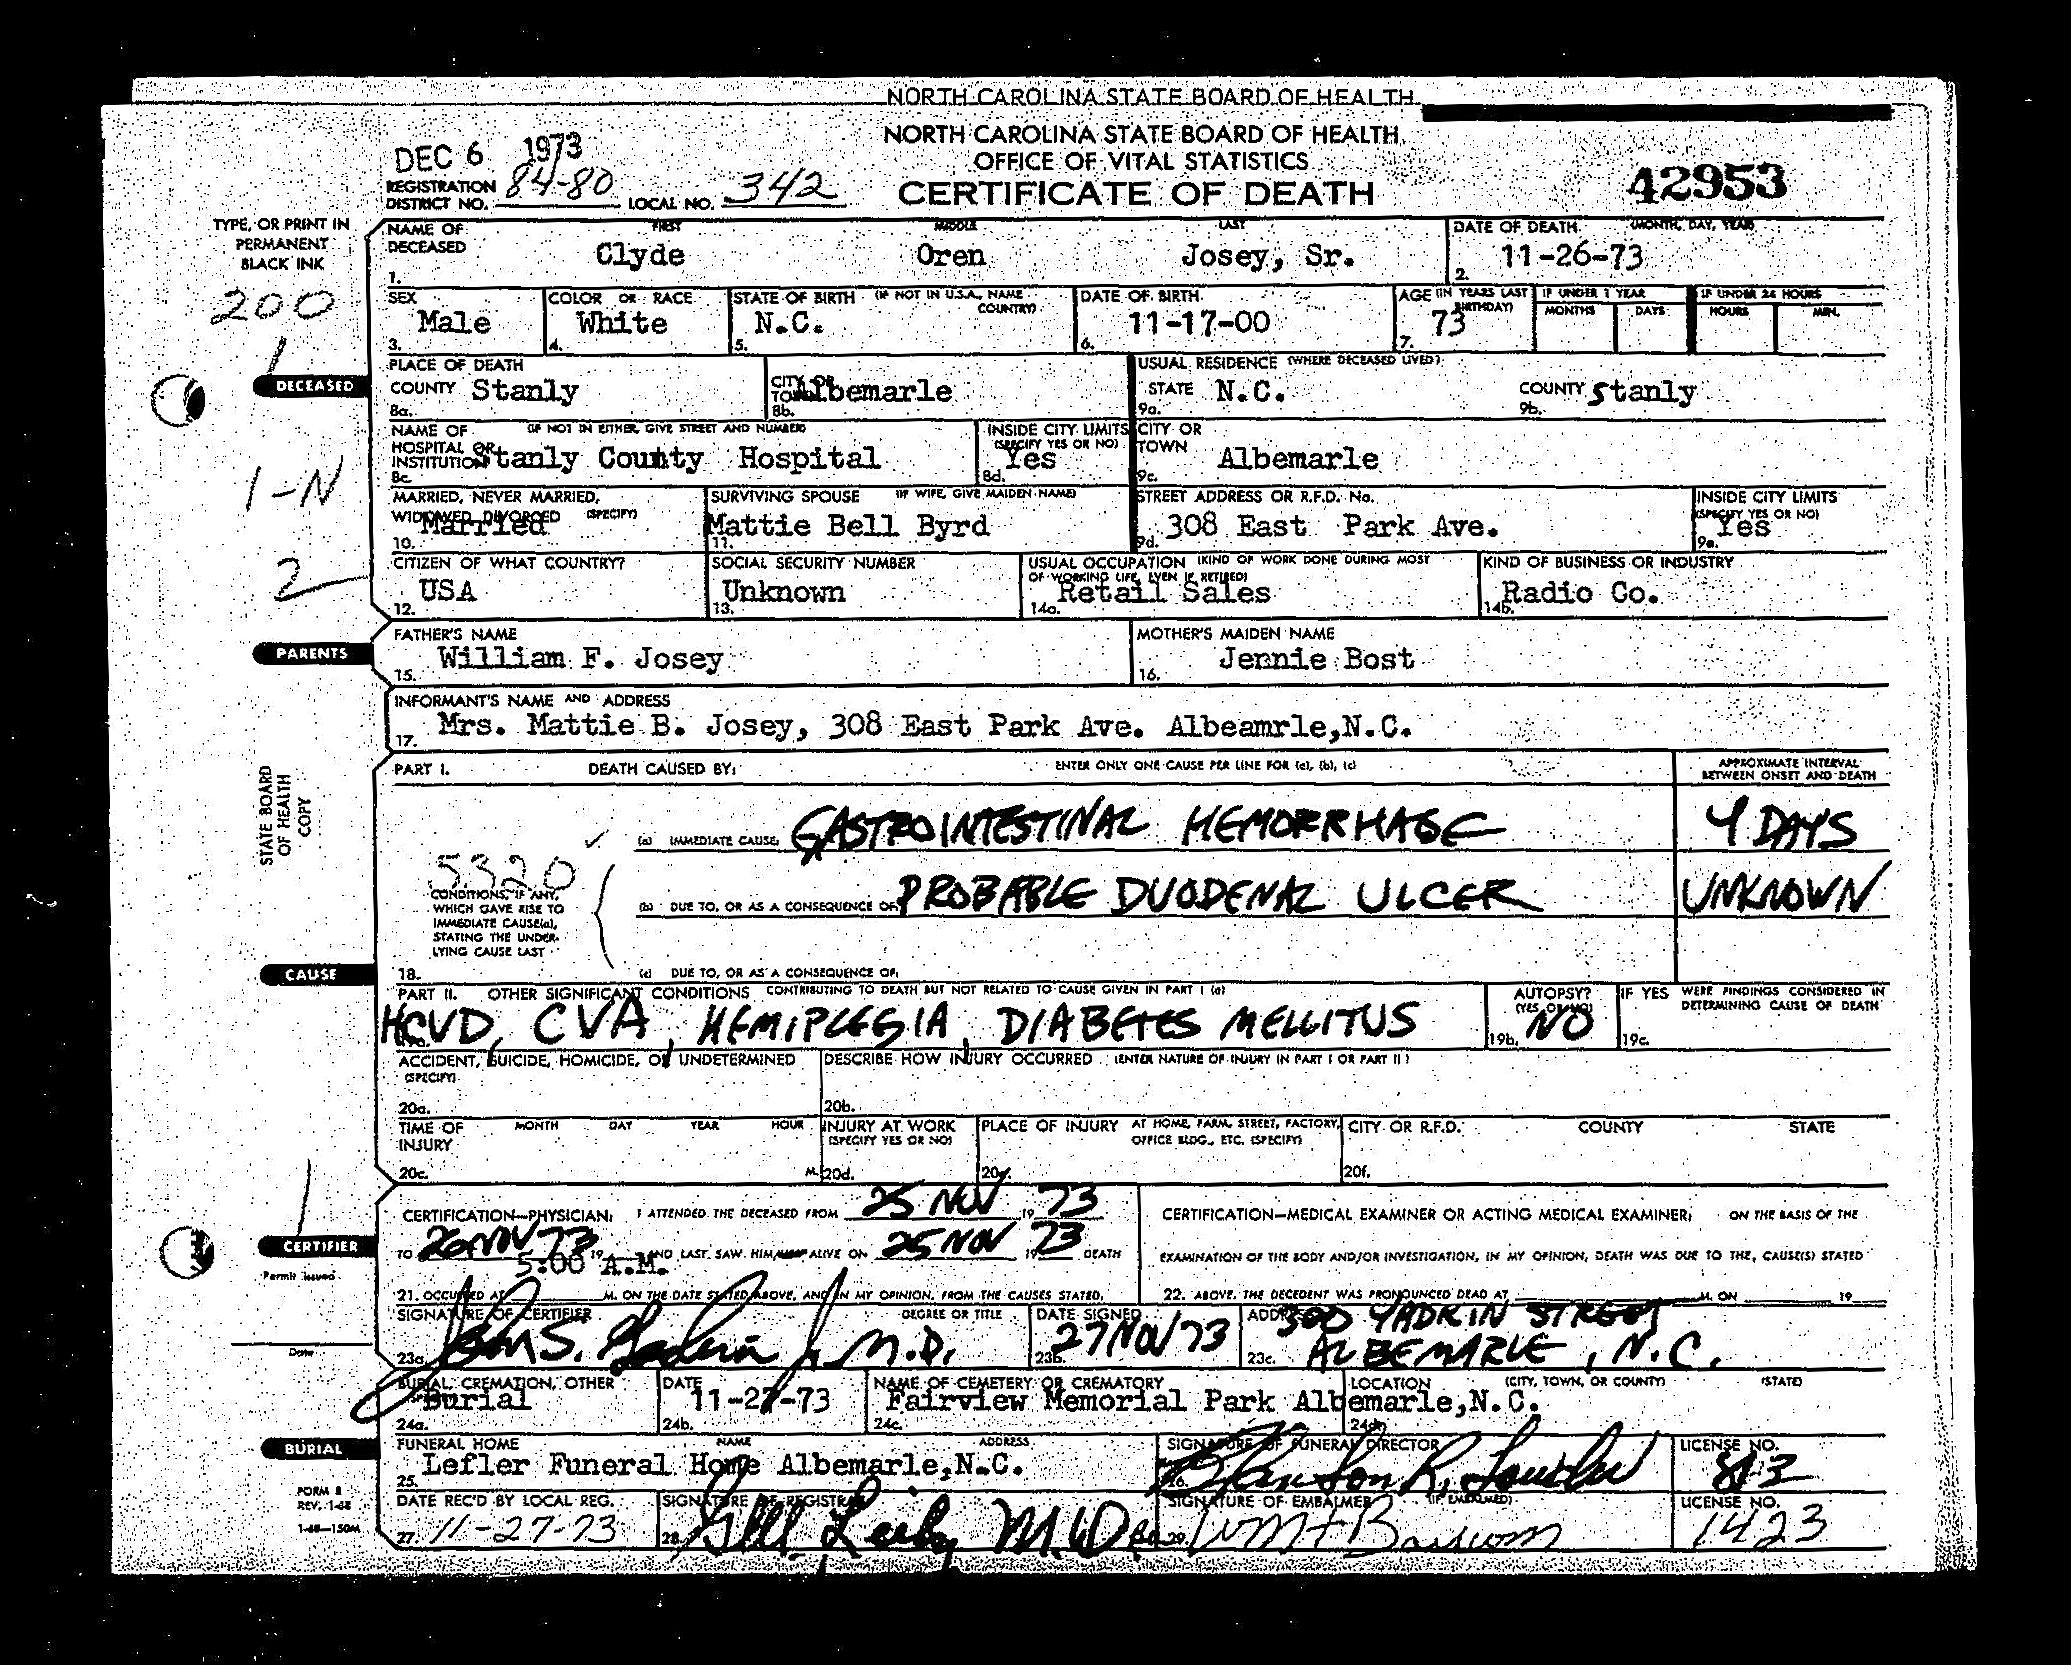 NORTH CAROLINA STATE BOARD OF HEALTH
NORTH CAROLINA STATE BOARD OF HEALTH
OFFICE OF VITAL STATISTICS
CERTIFICATE OF DEATH
DEC 6 1973
REGISTRATION DISTRICT NO. 84-80 LOCAL NO. 342
42953
TYPE, OR PRINT IN
PERMANENT
BLACK INK
200
1
DECEASED
1-N
2
NAME OF DECEASED FIRST MIDDLE LAST DATE OF DEATH (MONTH, DAY, YEAR)
1. Clyde Oren Josey, Sr. 2. 11-26-73
SEX COLOR OR RACE STATE OF BIRTH (IF NOT IN U.S.A., NAME COUNTRY) DATE OF BIRTH AGE (IN YEARS LAST BIRTHDAY) IF UNDER 1 YEAR IF UNDER 24 HOURS
MONTHS DAYS HOURS MIN.
3. Male 4. White 5. N.C. 6. 11-17-00 7. 73
PLACE OF DEATH USUAL RESIDENCE (WHERE DECEASED LIVED)
8a. COUNTY Stanly 8b. CITY OR TOWN Albemarle 9a. STATE N.C. 9b. COUNTY Stanly
NAME OF HOSPITAL OR INSTITUTION (IF NOT IN EITHER, GIVE STREET AND NUMBER) INSIDE CITY LIMITS (SPECIFY YES OR NO) CITY OR TOWN
8c. Stanly County Hospital 8d. Yes 9c. Albemarle
MARRIED, NEVER MARRIED, WIDOWED, DIVORCED (SPECIFY) SURVIVING SPOUSE (IF WIFE, GIVE MAIDEN NAME) STREET ADDRESS OR R.F.D. No. INSIDE CITY LIMITS (SPECIFY YES OR NO)
10. Married 11. Mattie Bell Byrd 9d. 308 East Park Ave. 9e. Yes
CITIZEN OF WHAT COUNTRY? SOCIAL SECURITY NUMBER USUAL OCCUPATION (KIND OF WORK DONE DURING MOST OF WORKING LIFE, EVEN IF RETIRED) KIND OF BUSINESS OR INDUSTRY
12. USA 13. Unknown 14a. Retail Sales 14b. Radio Co.
PARENTS
FATHER'S NAME MOTHER'S MAIDEN NAME
15. William F. Josey 16. Jennie Bost
INFORMANT'S NAME AND ADDRESS
17. Mrs. Mattie B. Josey, 308 East Park Ave. Albeamrle,N.C.
STATE BOARD
OF HEALTH
COPY
PART I. DEATH CAUSED BY: ENTER ONLY ONE CAUSE PER LINE FOR (a), (b), (c) APPROXIMATE INTERVAL BETWEEN ONSET AND DEATH
(a) IMMEDIATE CAUSE, GASTROINTESTINAL HEMORRHAGE 4 DAYS
5320
CONDITIONS, IF ANY,
WHICH GAVE RISE TO
IMMEDIATE CAUSE(a),
STATING THE UNDER-
LYING CAUSE LAST
(b) DUE TO, OR AS A CONSEQUENCE OF, PROBABLE DUODENAL ULCER UNKNOWN
CAUSE
18. (c) DUE TO, OR AS A CONSEQUENCE OF,
PART II. OTHER SIGNIFICANT CONDITIONS CONTRIBUTING TO DEATH BUT NOT RELATED TO CAUSE GIVEN IN PART I (a) AUTOPSY? (YES OR NO) IF YES WERE FINDINGS CONSIDERED IN DETERMINING CAUSE OF DEATH
HCVD, CVA, HEMIPLEGIA, DIABETES MELLITUS 19b. NO 19c.
ACCIDENT, SUICIDE, HOMICIDE, OR UNDETERMINED (SPECIFY) DESCRIBE HOW INJURY OCCURRED (ENTER NATURE OF INJURY IN PART I OR PART II)
20a. 20b.
TIME OF INJURY MONTH DAY YEAR HOUR INJURY AT WORK (SPECIFY YES OR NO) PLACE OF INJURY AT HOME, FARM, STREET, FACTORY, OFFICE BLDG., ETC. (SPECIFY) CITY OR R.F.D. COUNTY STATE
20c. M. 20d. 20e. 20f.
1
CERTIFIER
Permit Issued
Date
CERTIFICATION—PHYSICIAN: I ATTENDED THE DECEASED FROM 25 NOV 19 73
TO 26 NOV 73 19 AND LAST SAW HIM ALIVE ON 25 NOV 19 73 DEATH
5:00 A.M.
21. OCCURRED AT M. ON THE DATE STATED ABOVE, AND IN MY OPINION, FROM THE CAUSES STATED,
CERTIFICATION—MEDICAL EXAMINER OR ACTING MEDICAL EXAMINER: ON THE BASIS OF THE
EXAMINATION OF THE BODY AND/OR INVESTIGATION, IN MY OPINION, DEATH WAS DUE TO THE, CAUSE(S) STATED
22. ABOVE. THE DECEDENT WAS PRONOUNCED DEAD AT M. ON 19
SIGNATURE OF CERTIFIER DEGREE OR TITLE DATE SIGNED ADDRESS 300 YADKIN STREET
23a. S. Jr. M.D. 23b. 27 NOV 73 23c. ALBEMARLE, N.C.
BURIAL, CREMATION, OTHER DATE NAME OF CEMETERY OR CREMATORY LOCATION (CITY, TOWN, OR COUNTY) (STATE)
24a. Burial 24b. 11-27-73 24c. Fairview Memorial Park 24d. Albemarle,N.C.
BURIAL
FUNERAL HOME NAME ADDRESS SIGNATURE OF FUNERAL DIRECTOR LICENSE NO.
25. Lefler Funeral Home Albemarle,N.C. 26. R. 813
FORM 8
REV. 1-68
1-68—150M
DATE REC'D BY LOCAL REG. SIGNATURE OF REGISTRAR SIGNATURE OF EMBALMER (IF EMBALMED) LICENSE NO.
27. 11-27-73 28. M.D. 29. 1423